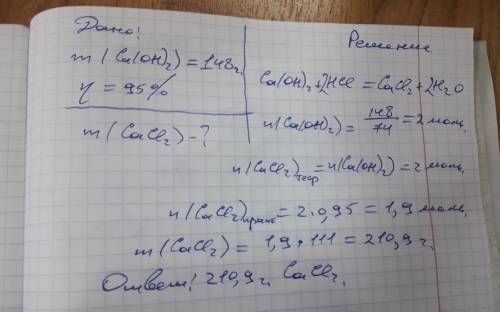 Дано:
m(Ca(OH)₂) = 148г.
η = 95%
m(CaCl₂) - ?
Решение
Ca(OH)₂ + 2HCl = CaCl₂ + 2H₂O
n(Ca(OH)₂) = 148/74 = 2 моль.
n(CaCl₂)теор = n(Ca(OH)₂) = 2 моль.
n(CaCl₂)практ = 2 · 0,95 = 1,9 моль.
m(CaCl₂) = 1,9 · 111 = 210,9 г.
Ответ: 210,9 г. CaCl₂.